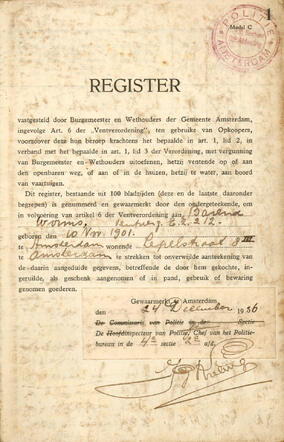 1
Model C
POLITIE
AMSTERDAM
REGISTER
vastgesteld door Burgemeester en Wethouders der Gemeente Amsterdam,
ingevolge Art. 6 der „Ventverordening”, ten gebruike van Opkoopers,
voorzoover deze hun beroep krachtens het bepaalde in art. 1, lid 2, in
verband met het bepaalde in art. 1, lid 3 der Verordening, met vergunning
van Burgemeester en Wethouders uitoefenen, hetzij ventende op of aan
den openbaren weg, of aan of in de huizen, hetzij te water, aan boord
van vaartuigen.
Dit register, bestaande uit 100 bladzijden (deze en de laatste daaronder
begrepen) is genummerd en gewaarmerkt door den ondergeteekende, om
in voldoening van artikel 6 der Ventverordening aan Barend
Worms, 212.
geboren den 10 Nov. 1901.
te Amsterdam wonende Lepelstraat 8 III
Amsterdam te strekken tot onverwijlde aanteekening van
de daarin aangeduide gegevens, betreffende de door hem gekochte, in-
geruilde, als geschenk aangenomen of in pand, gebruik of bewaring
genomen goederen.
Gewaarmerkt te Amsterdam,
den 24 December 1936
De Commissaris van Politie in de Sectie
De Hoofdinspecteur van Politie, Chef van het Politie-
bureau in de 4e sectie 2e afd.